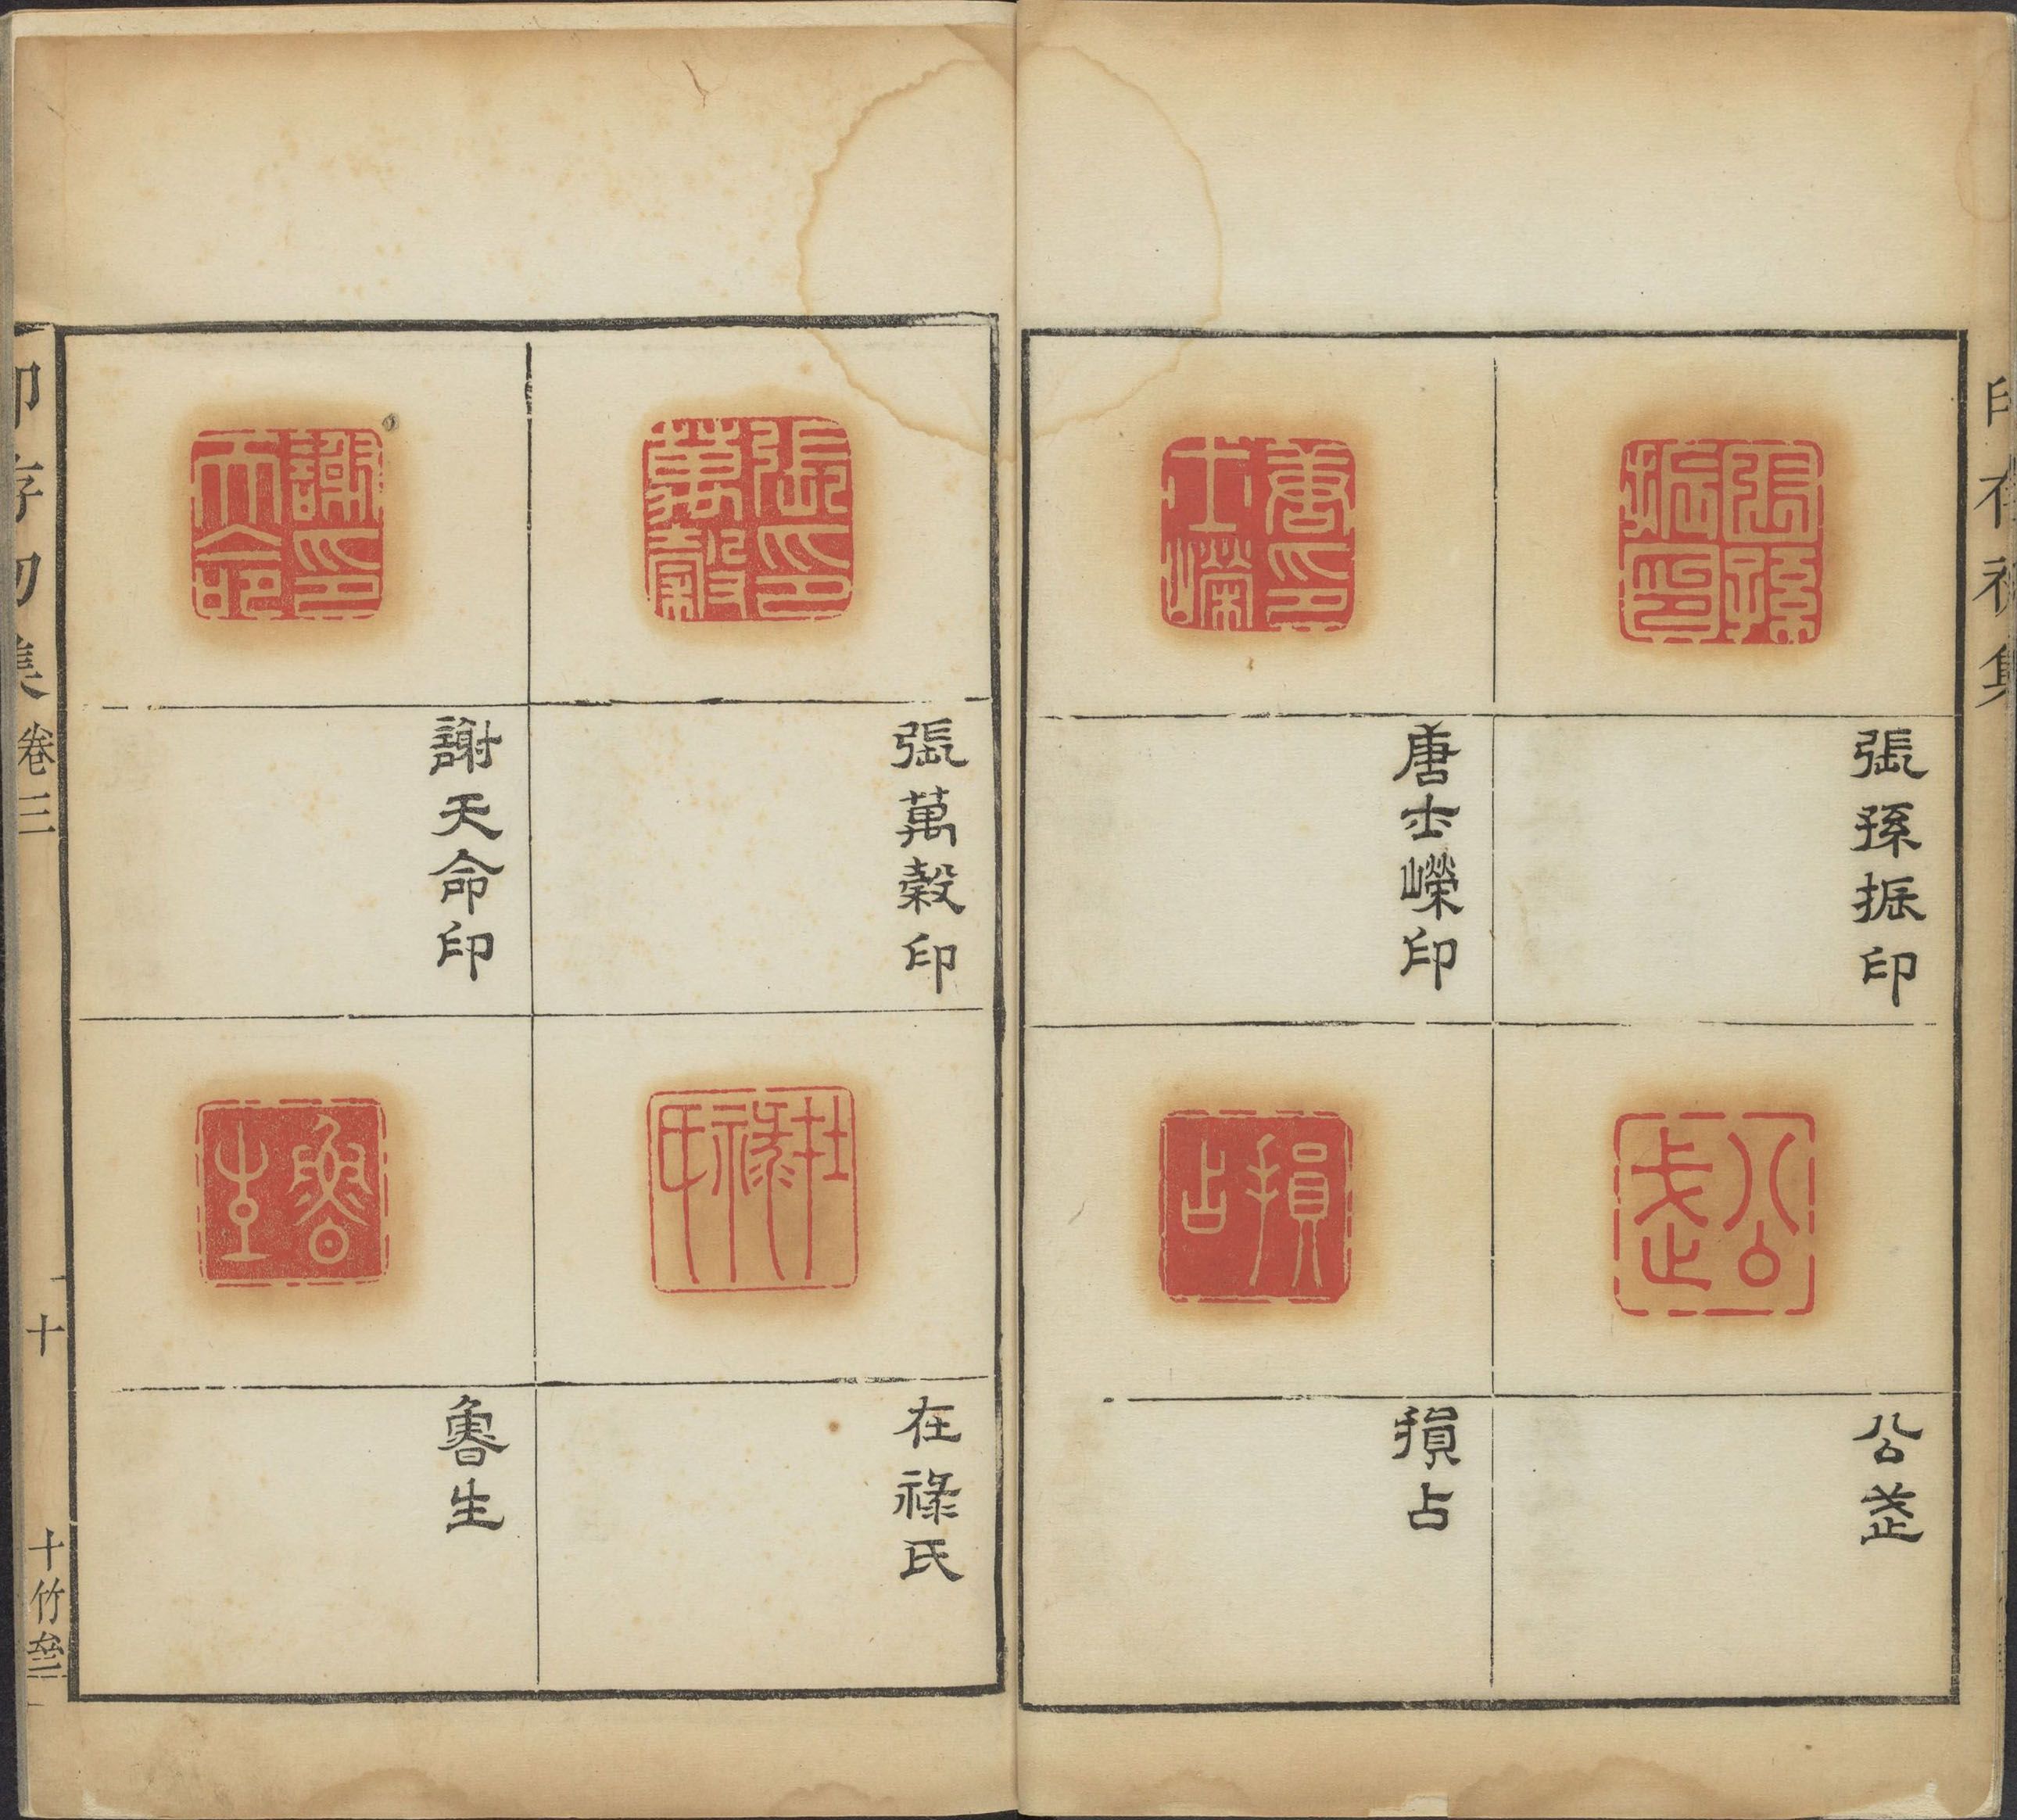 印存初集
張孫振印
公武
唐士嶸印
損占
張萬穀印
在祿氏
謝天命印
魯生
印存初集 卷三
十
十竹